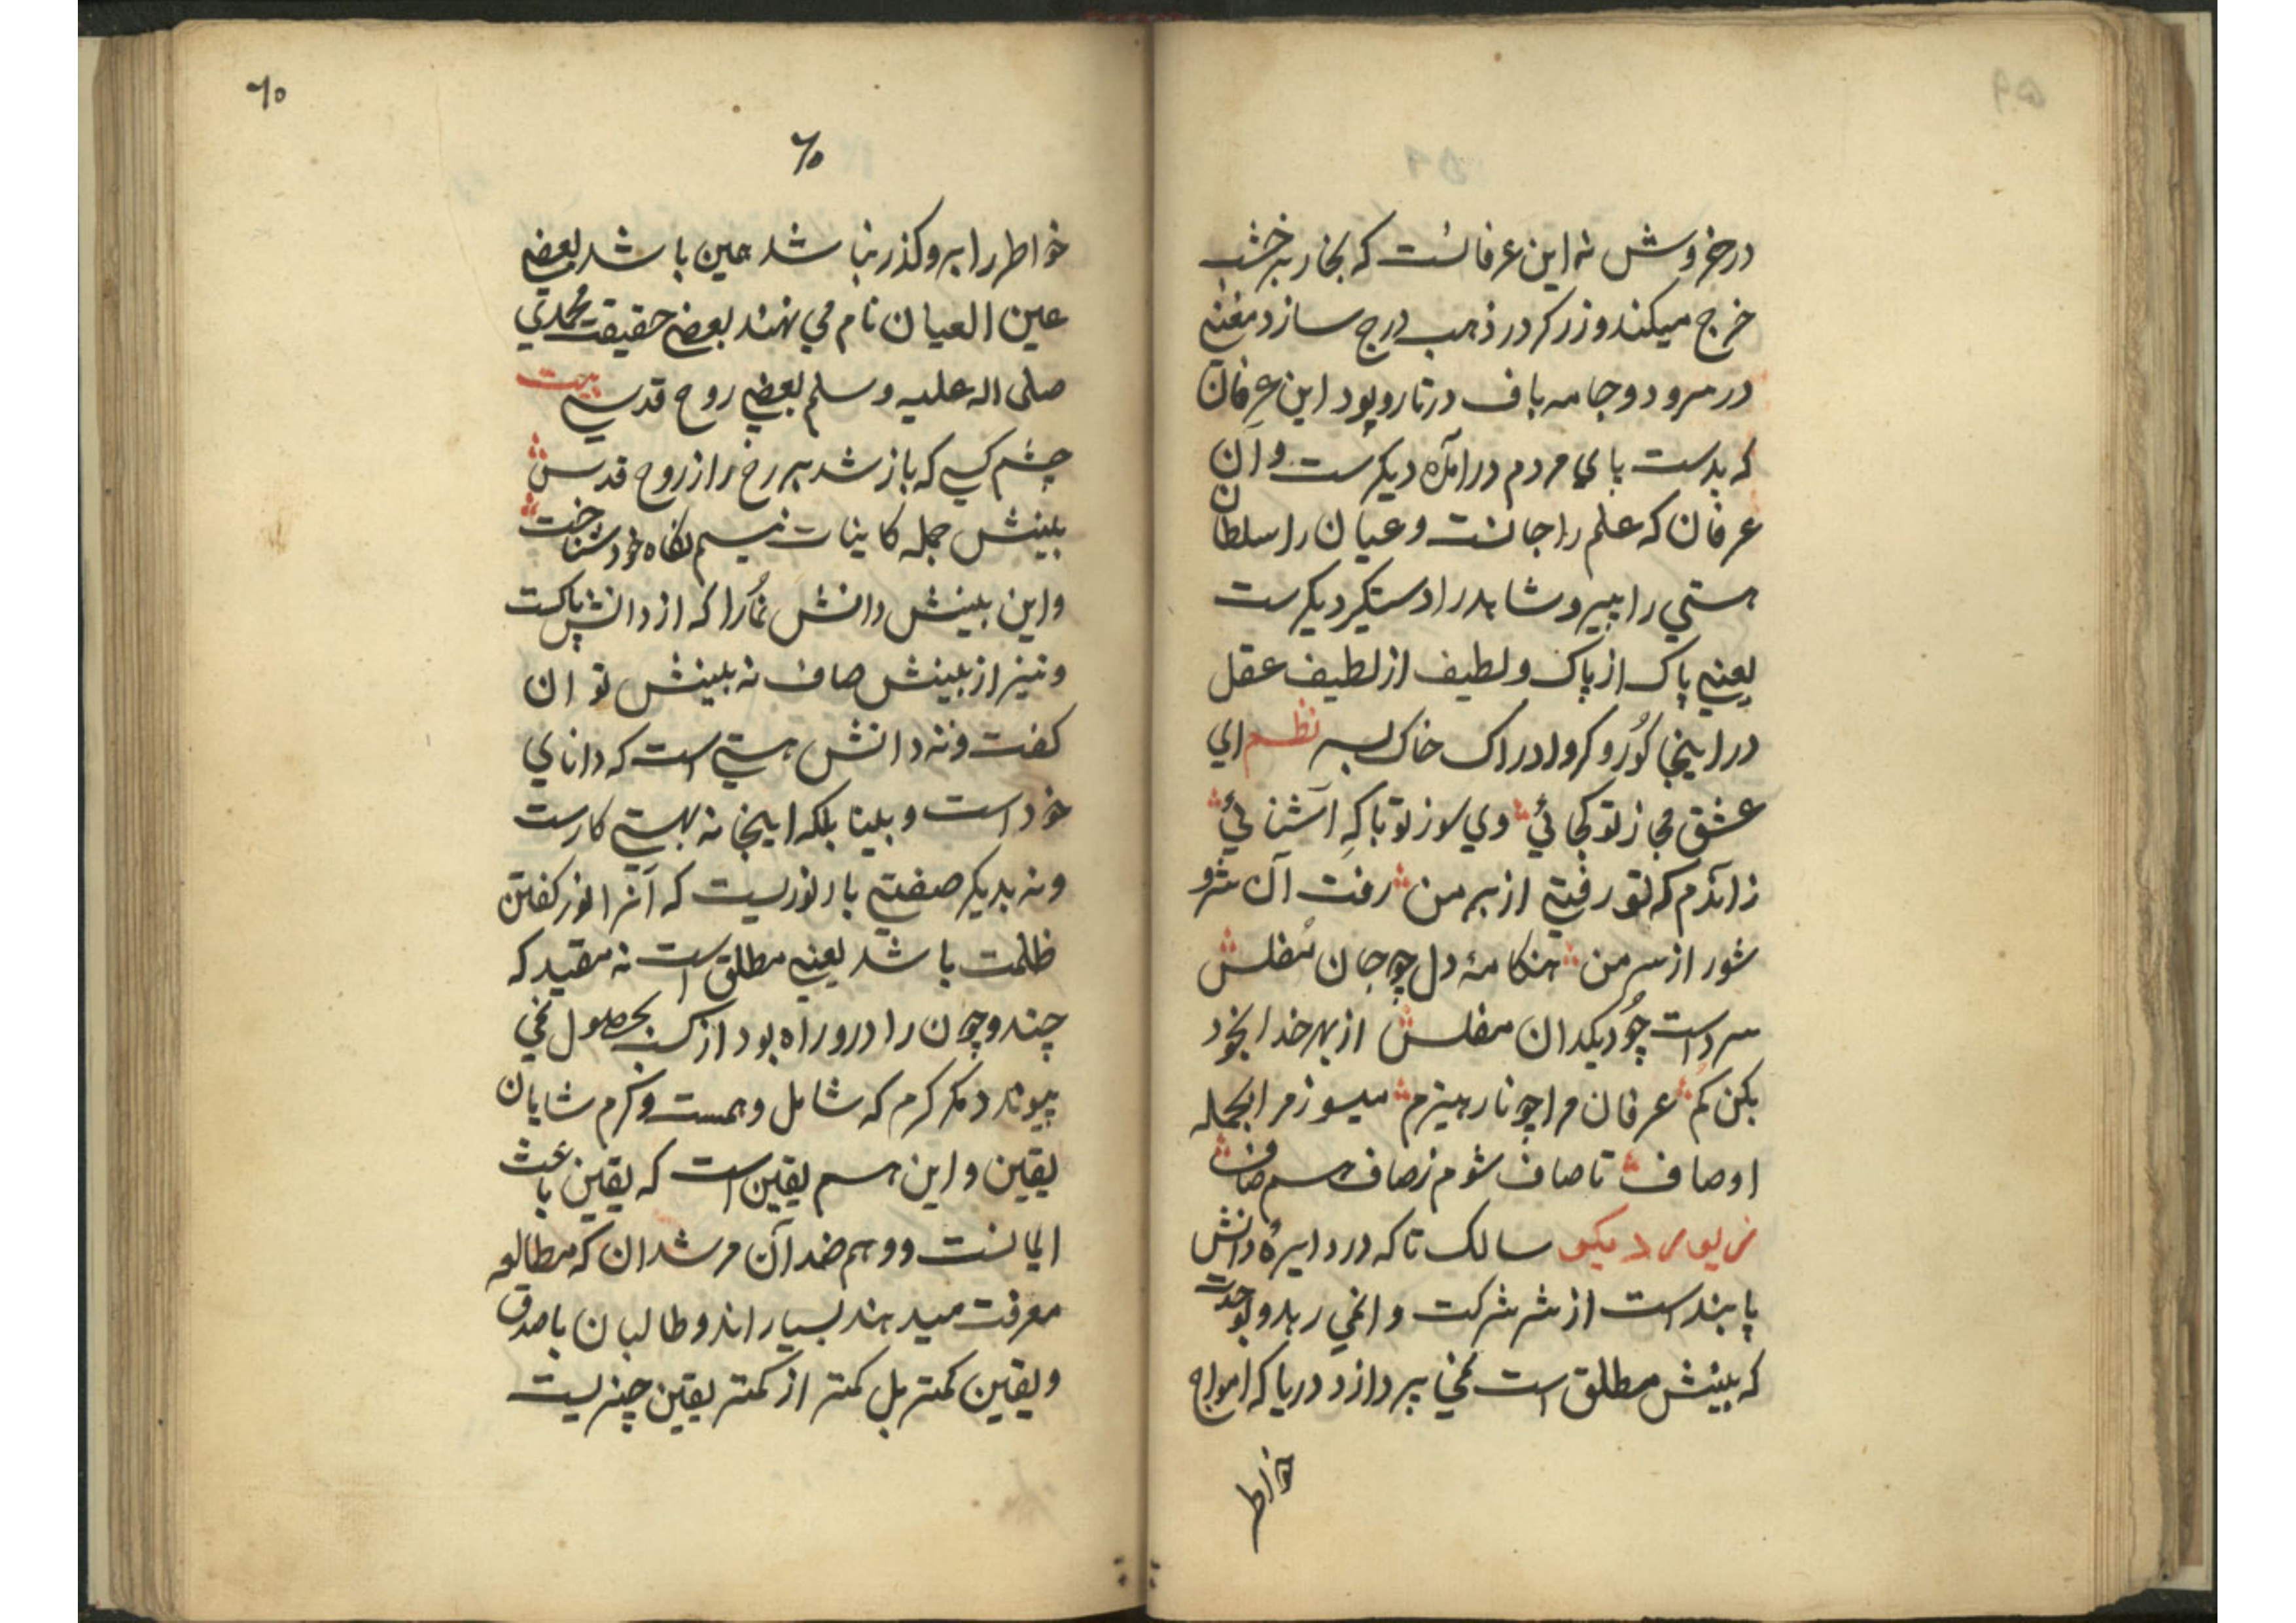 در خروش نه این عرفانست که بخار به خشب
خرج میکند و زرکر در ذهب درج سازد مغنی
در سرود و جامه باف در تار و پود این عرفان
که بدست بای مردم درآمده دیکرست و آن
عرفان که علم را جانست و عیان را سلطان
هستی را پیر و شاهد را دستکیر دیکرست
یعنی پاک از پاک و لطیف از لطیف عقل
در اینجا کور و کر و ادراک خاک بسر نظم ای
عشق مجاز تو کجائی وی سوز تو با که آشنائی
زاندم که تو رفتی از بر من رفت آن شر و
شور از سر من هنکامهٔ دل چو جان مفلس
سرد است چو دیکدان مفلس از بهر خدا بخود
بکن کم عرفان مرا چو نار هیزم میسوز مرا بجمله
اوصاف تا صاف شوم ز صاف هم صاف
زیور دیکر سالک تا که در دایرهٔ دانش
پابند است از شر شرکت وانمی رهد و بوحدت
که بینش مطلق است نمی پردازد دریا که امواج
خواطر
٦٠
٦٠
خواطر را برو کذر نباشد همین باشد بعضی
عین العیان نام می نهند بعضی حقیقت محمدی
صلی اله علیه وسلم بعضی روح قدسی بیت
چشم کسی که باز شد بر رخ راز روح قدس
بینش جمله کاینات نیم نکاه خود شناخت
و این بینش دانش نما را که از دانش پاکست
و نیز از بینش صاف نه بینش توان
کفت و نه دانش هستی است که دانای
خود است و بینا بلکه اینجا نه بهستی کارست
و نه بدیکر صفتی بار نوریست که آنرا نور کفتن
ظلمت باشد یعنی مطلق است نه مقید که
چند و چون را درو راه بود از کسب بحصول نمی
پیوندد مکر کرم که شامل و همست و کرم شایان
یقین و این هم یقین است که یقین باعث
ایمانست و وهم ضد آن مرشدان که مطالعه
معرفت میدهند بسیار اند و طالبان باصدق
و یقین کمتر بل کمتر از کمتر یقین چیزیست